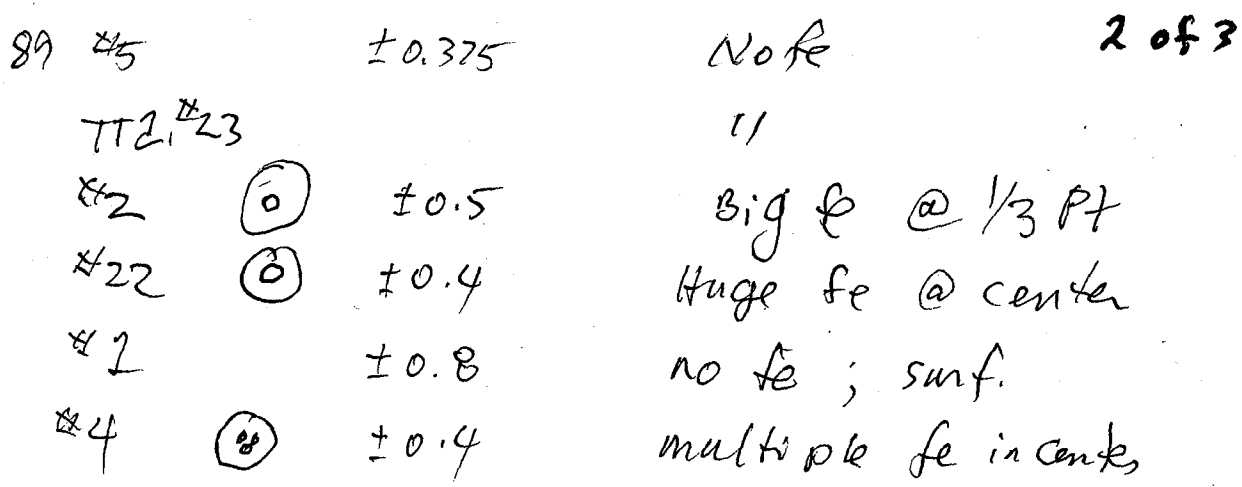 2 of 3
89 #5 ±0.375 No fe
TT2,#23 "
#2 ±0.5 Big fe @ 1/3 Pt
#22 ±0.4 Huge fe @ center
#1 ±0.8 no fe ; surf.
#4 ±0.4 multiple fe in center